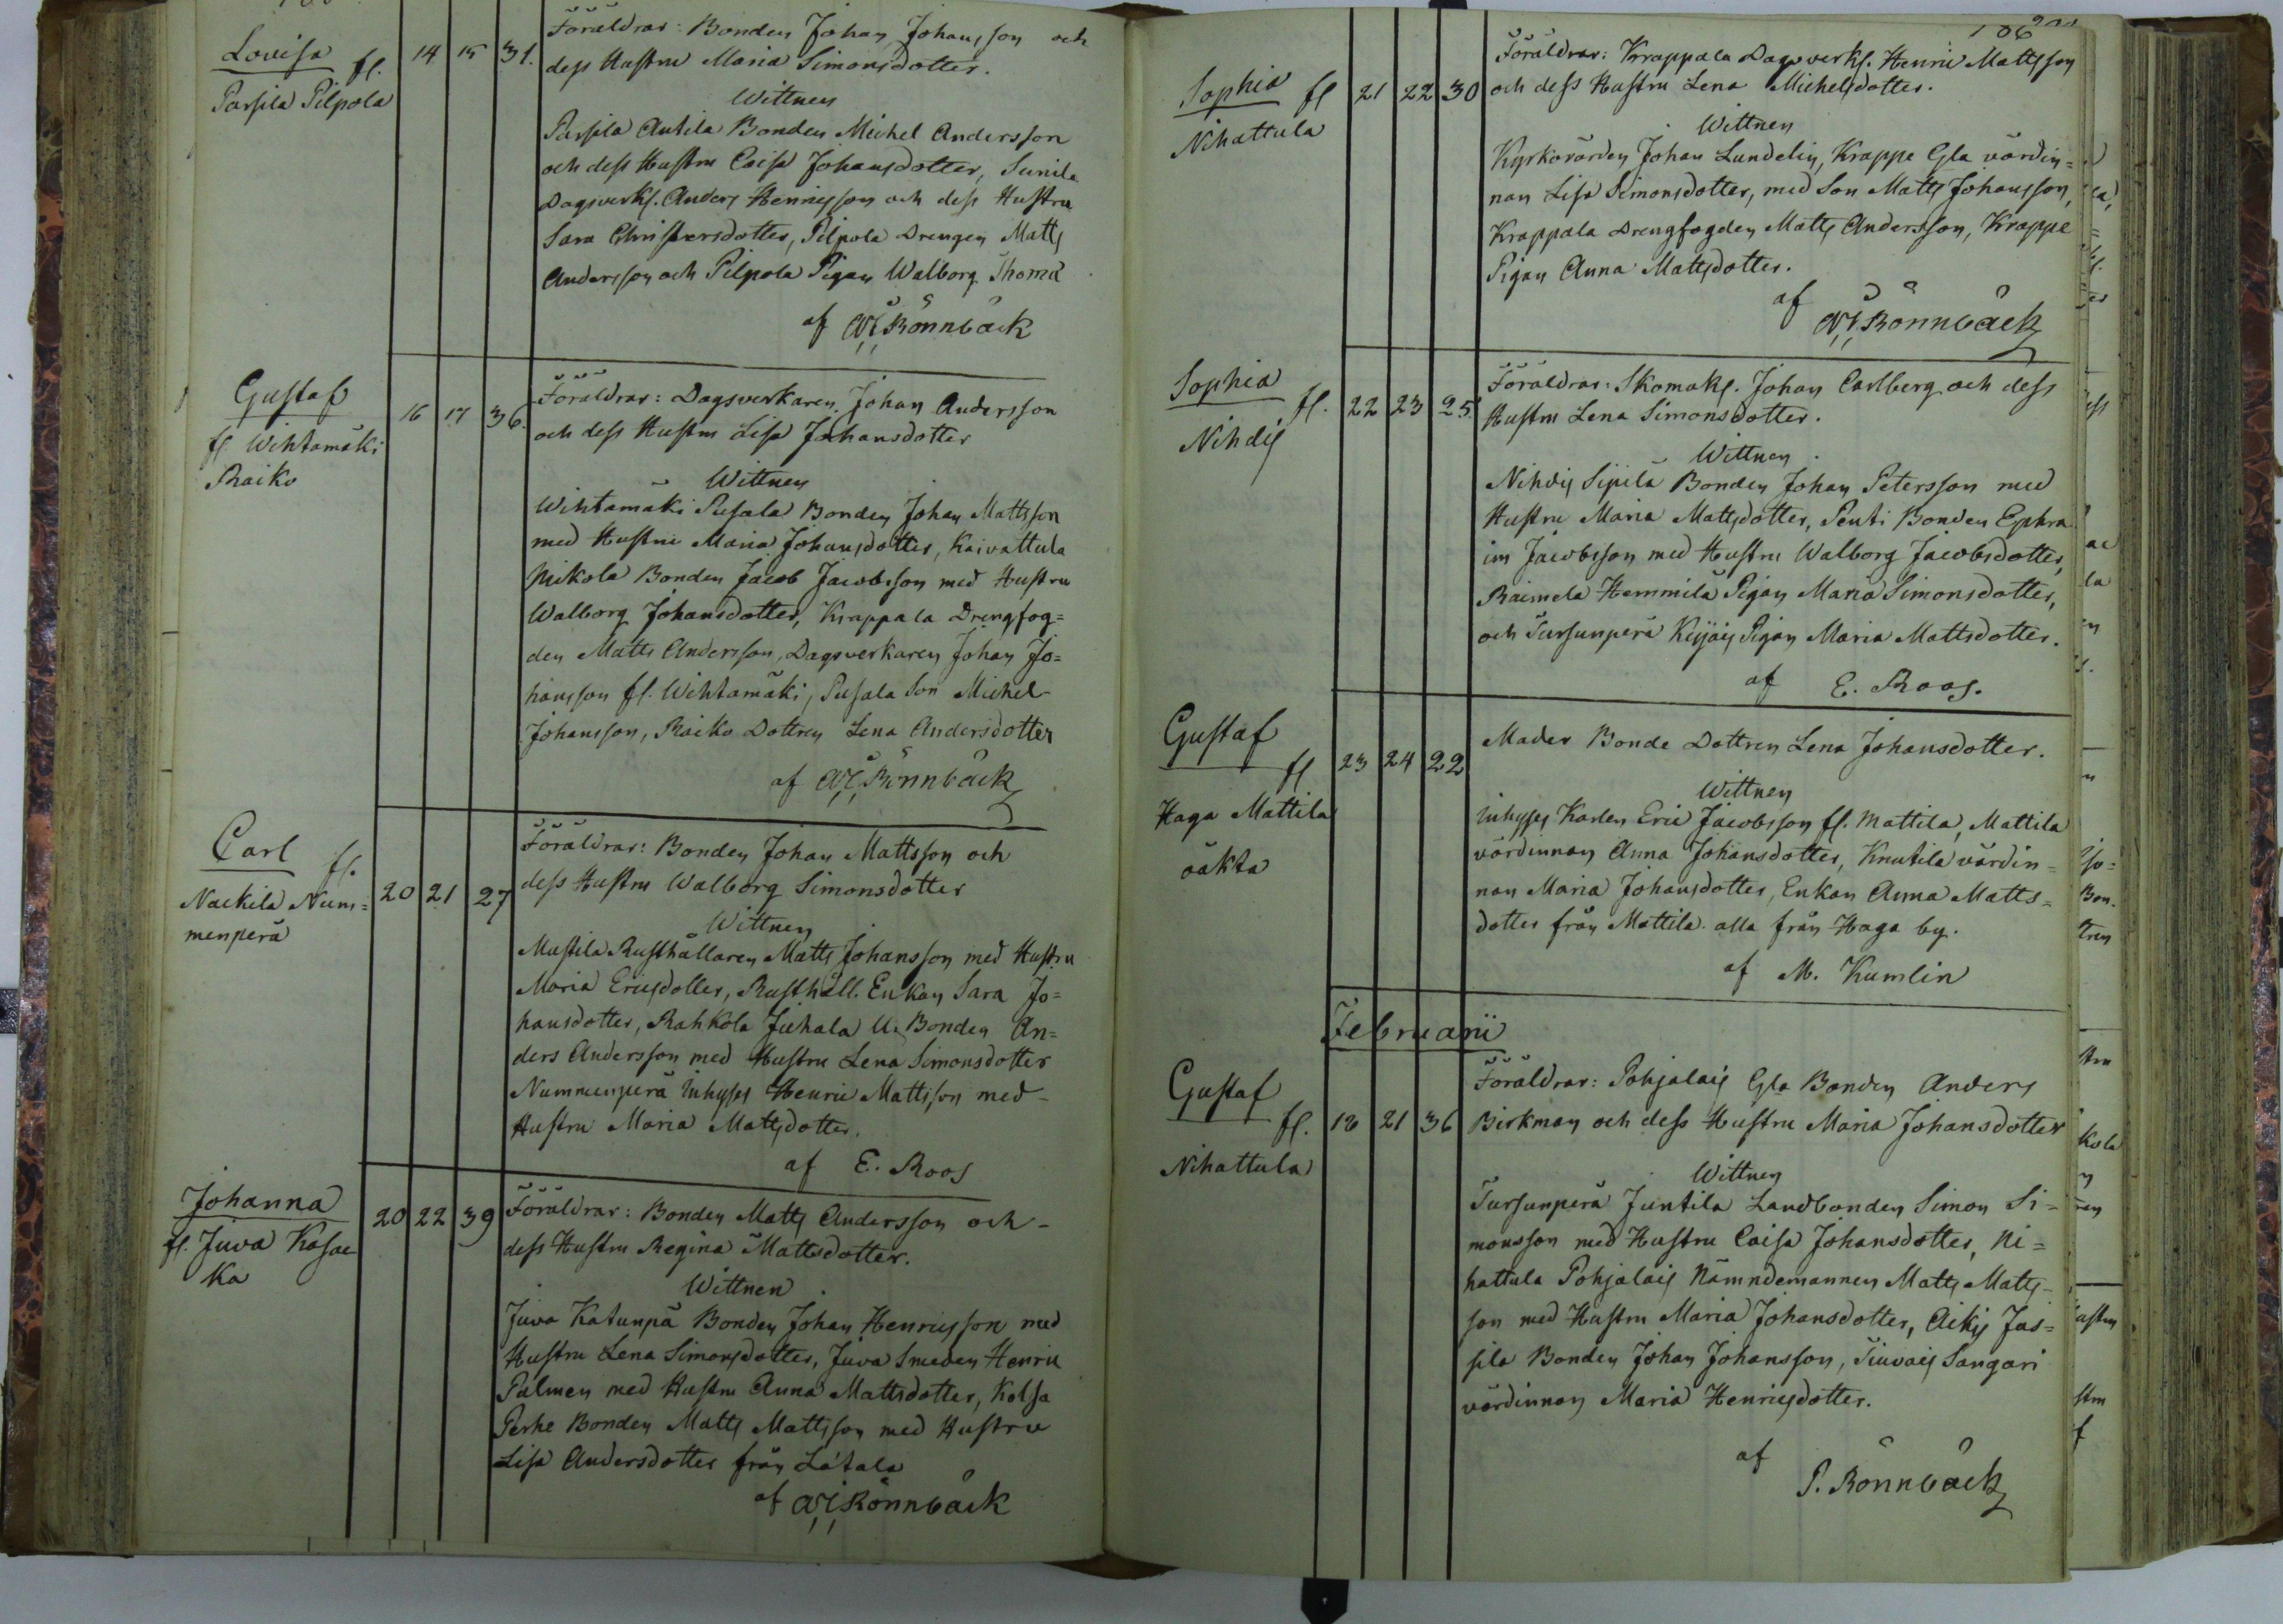 Lovisa fl. 14 15 31. Föräldrar: Bonden Johan Johansson och
Parsila Pilpola dess Hustru Maria Simonsdotter.
Wittnen
Parsila Antila Bonden Michel Andersson
och dess Hustru Caisa Johansdotter, Sunila
Dagsverks. Anders Henricsson och dess Hustru
Sara Christersdotter, Pilpola Drengen Matts
Andersson och Pilpola Pigan Walborg Thomæ
af Rönnbäck
Gustaf 16 17 36. Föräldrar: Dagsverkaren Johan Andersson
fl. Wihtamäki och dess Hustru Lisa Johansdotter
Raiko
Wittnen
Wihtamäki Pusala Bonden Johan Mattsson
med Hustru Maria Johansdotter, Kaivattula
Mikola Bonden Jacob Jacobsson med Hustru
Walborg Johansdotter, Krappala Drengfog=
den Matts Andersson, Dagsverkaren Johan Jo=
hansson fl. Wihtamäki, Pusala Son Michel
Johansson, Raiko Dottren Lena Andersdotter
af Rönnbäck
Carl fl. 20 21 27 Föräldrar: Bonden Johan Mattsson och
Nackila Num= dess Hustru Walborg Simonsdotter
menperä
Wittnen
Mustila Rusthållaren Matts Johansson med Hustru
Maria Ericsdotter, Rusthåll. Enkan Sara Jo=
hansdotter, Rahkola Juhala U. Bonden An=
ders Andersson med Hustru Lena Simonsdotter
Nummenperä Inhyses Henric Mattsson med
Hustru Maria Mattsdotter.
af E. Roos
Johanna 20 22 39 Föräldrar: Bonden Matts Andersson och
fl. Juva Kasac dess Hustru Regina Mattsdotter.
ka
Wittnen
Juva Katunpä Bonden Johan Henricsson med
Hustru Lena Simonsdotter, Juva Smeden Henric
Palmen med Hustru Anna Mattsdotter, Kolsa
Perhe Bonden Matts Mattsson med Hustru
Lisa Andersdotter från Lätala
af Rönnbäck
106
Sophia fl 21 22 30 Föräldrar: Krappala Dagsverks. Henric Mattsson
Nihattula och dess Hustru Lena Michelsdotter.
Wittnen
Kyrkovärden Johan Lundelin, Krappe Gla värdin=
nan Lisa Simonsdotter, med Son Matts Johansson,
Krappala Drengfogden Matts Andersson, Krappe
Pigan Anna Mattsdotter.
af Rönnbäck
Sophia fl. 22 23 25. Föräldrar: Skomak. Johan Carlberg och dess
Nihdis Hustru Lena Simonsdotter.
Wittnen
Nihdis Sipilä Bonden Johan Petersson med
Hustru Maria Mattsdotter, Penti Bonden Ephra
im Jacobsson med Hustru Walborg Jacobsdotter,
Raimela Hemmilä Pigan Maria Simonsdotter,
och Tursunperä Pigan Maria Mattsdotter.
af E. Roos.
Gustaf fl 23 24 22 Moder Bonde Dottren Lena Johansdotter.
Haga Mattila
oäkta
Wittnen
Inhyses Karlen Eric Jacobsson fl. Mattila, Mattila
värdinnan Anna Johansdotter, Knutila värdin=
nan Maria Johansdotter, Enkan Anna Matts=
dotter från Mattila. alla från Haga by.
af M. Kumlin
Februarii
Gustaf fl. 18 21 36 Föräldrar: Pohjalais Gla Bonden Anders
Nihattula Birkman och dess Hustru Maria Johansdotter
Wittnen
Tursunperä Juntila Landbonden Simon Si=
monsson med Hustru Caisa Johansdotter, Ni=
hattula Pohjalais Nämndemannen Matts Matts=
son med Hustru Maria Johansdotter, Aikis Jus=
sila Bonden Johan Johansson, Tiuvais Sangari
värdinnan Maria Henricsdotter.
af P. Rönnbäck